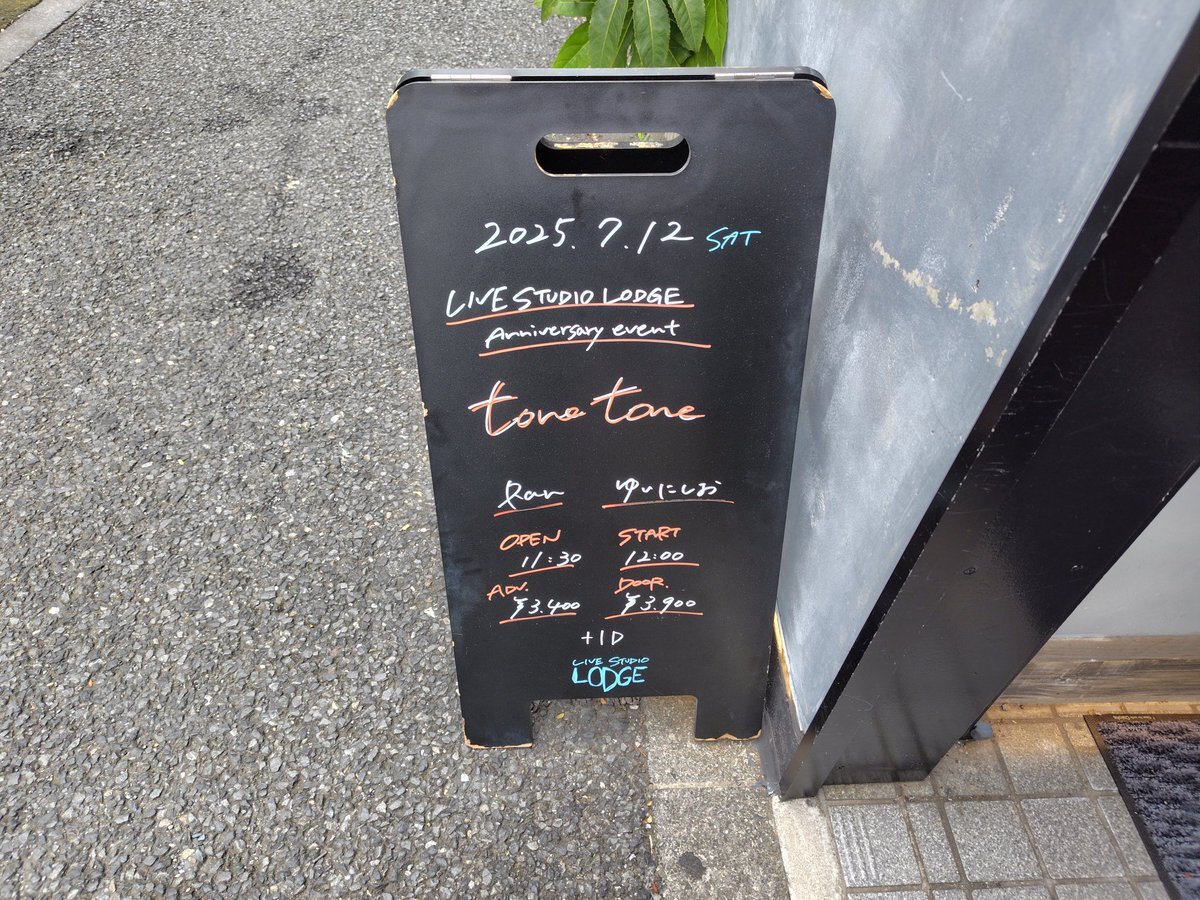 2025.7.12 SAT
LIVE STUDIO LODGE
Anniversary event
tone tone
Ran ゆいにしお
OPEN START
11:30 12:00
ADV. DOOR.
¥3.400 ¥3.900
+1D
LIVE STUDIO
LODGE